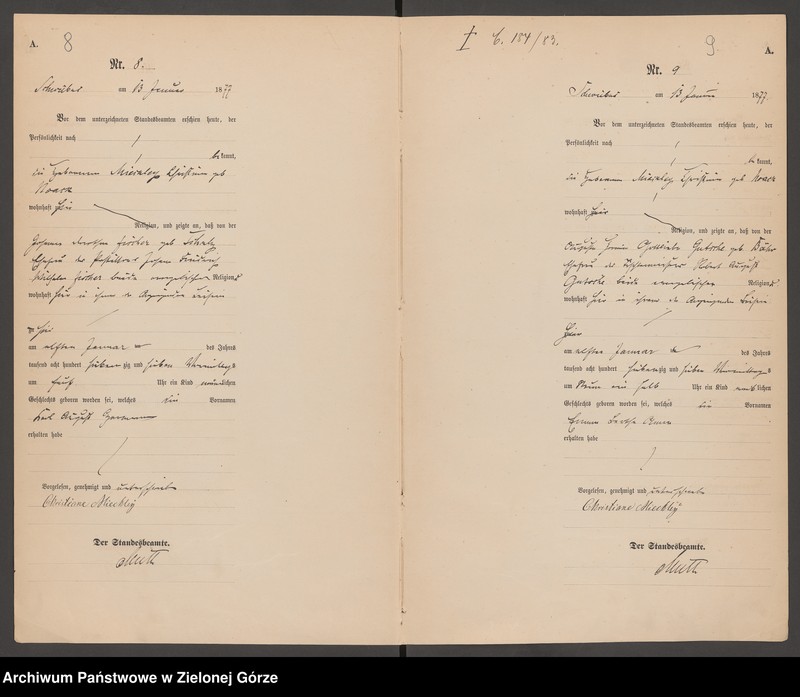 A. 8
Nr. 8.
am 13 Januar 1877
Vor dem unterzeichneten Standesbeamten erschien heute, der
Persönlichkeit nach
bekannt,
die Hebamme Christiane geb
Noack
wohnhaft hier
Religion, und zeigte an, daß von der
Johanne Dorothea Fischer geb.
Ehefrau des Johann
Wilhelm Fischer beide evangelischer Religion,
wohnhaft hier in ihrer
hier
am elften Januar des Jahres
tausend acht hundert siebenzig und sieben Vormittags
um fünf Uhr ein Kind männlichen
Geschlechts geboren worden sei, welches die Vornamen
Karl August Hermann
erhalten habe
Vorgelesen, genehmigt und unterschrieben
Christiane Mieckley
Der Standesbeamte.
Muth
† C. 184/83.
9. A.
Nr. 9
am 13 Januar 1877
Vor dem unterzeichneten Standesbeamten erschien heute, der
Persönlichkeit nach
bekannt,
die Hebamme Christiane geb Noack
wohnhaft hier
Religion, und zeigte an, daß von der
Auguste geb.
Ehefrau des Robert August
beide evangelischer Religion,
wohnhaft hier in ihrer
hier
am elften Januar des Jahres
tausend acht hundert siebenzig und sieben Vormittags
um Neun ein halb Uhr ein Kind weiblichen
Geschlechts geboren worden sei, welches die Vornamen
Emma Bertha Anna
erhalten habe
Vorgelesen, genehmigt und unterschrieben
Christiane Mieckley
Der Standesbeamte.
Muth
Archiwum Państwowe w Zielonej Górze